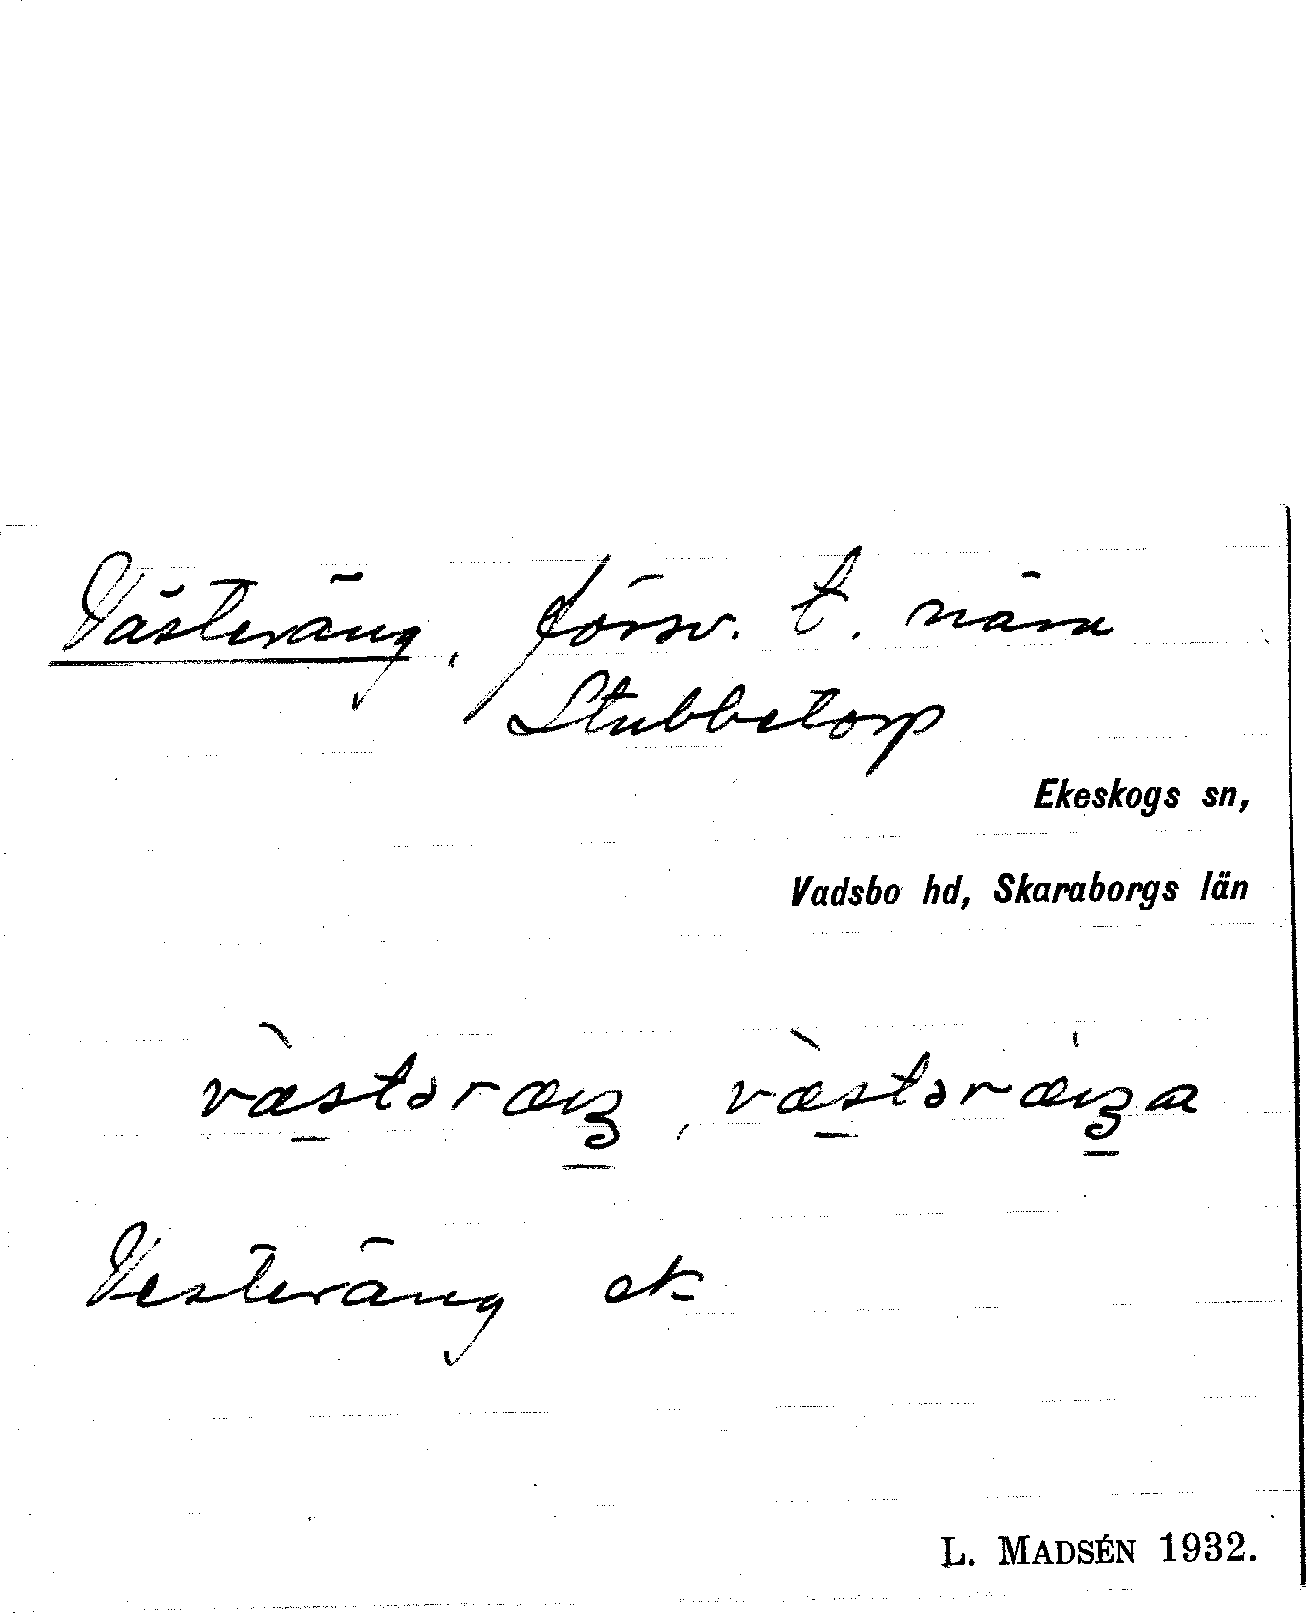 Västeräng, försv. t. nära
Stubbetorp
Ekeskogs sn,
Vadsbo hd, Skaraborgs län
væ̀stəræŋ, væ̀stəræ̀ŋa
Vesteräng ek
L. MADSÉN 1932.